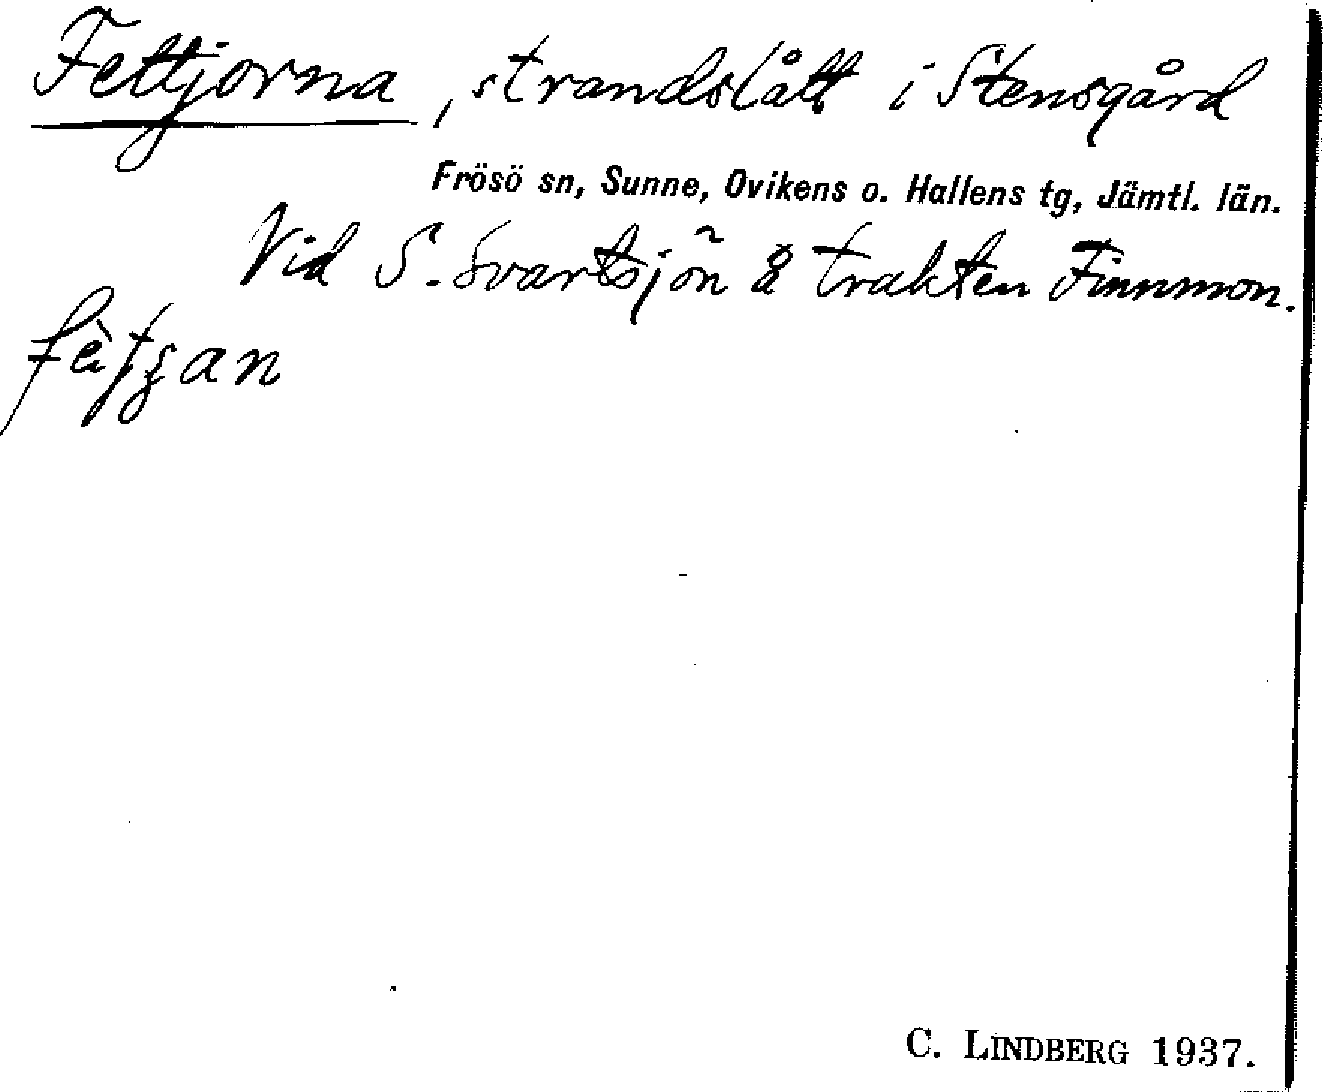 Fettjorna, strandslått i Stensgård
Frösö sn, Sunne, Ovikens o. Hallens tg, Jämtl. län.
Vid S. Svartsjön å trakten Finnmon.
C. LINDBERG 1937.